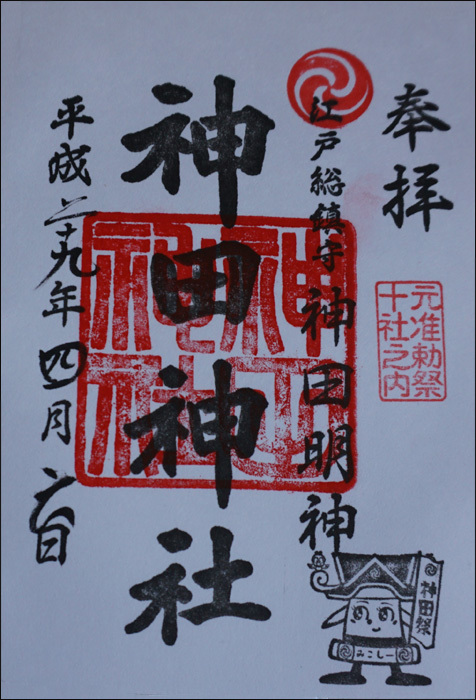 奉拝
元准勅祭
十社之内
江戸総鎮守 神田明神
神田神社
平成二十九年四月六日
神田祭
みこしー